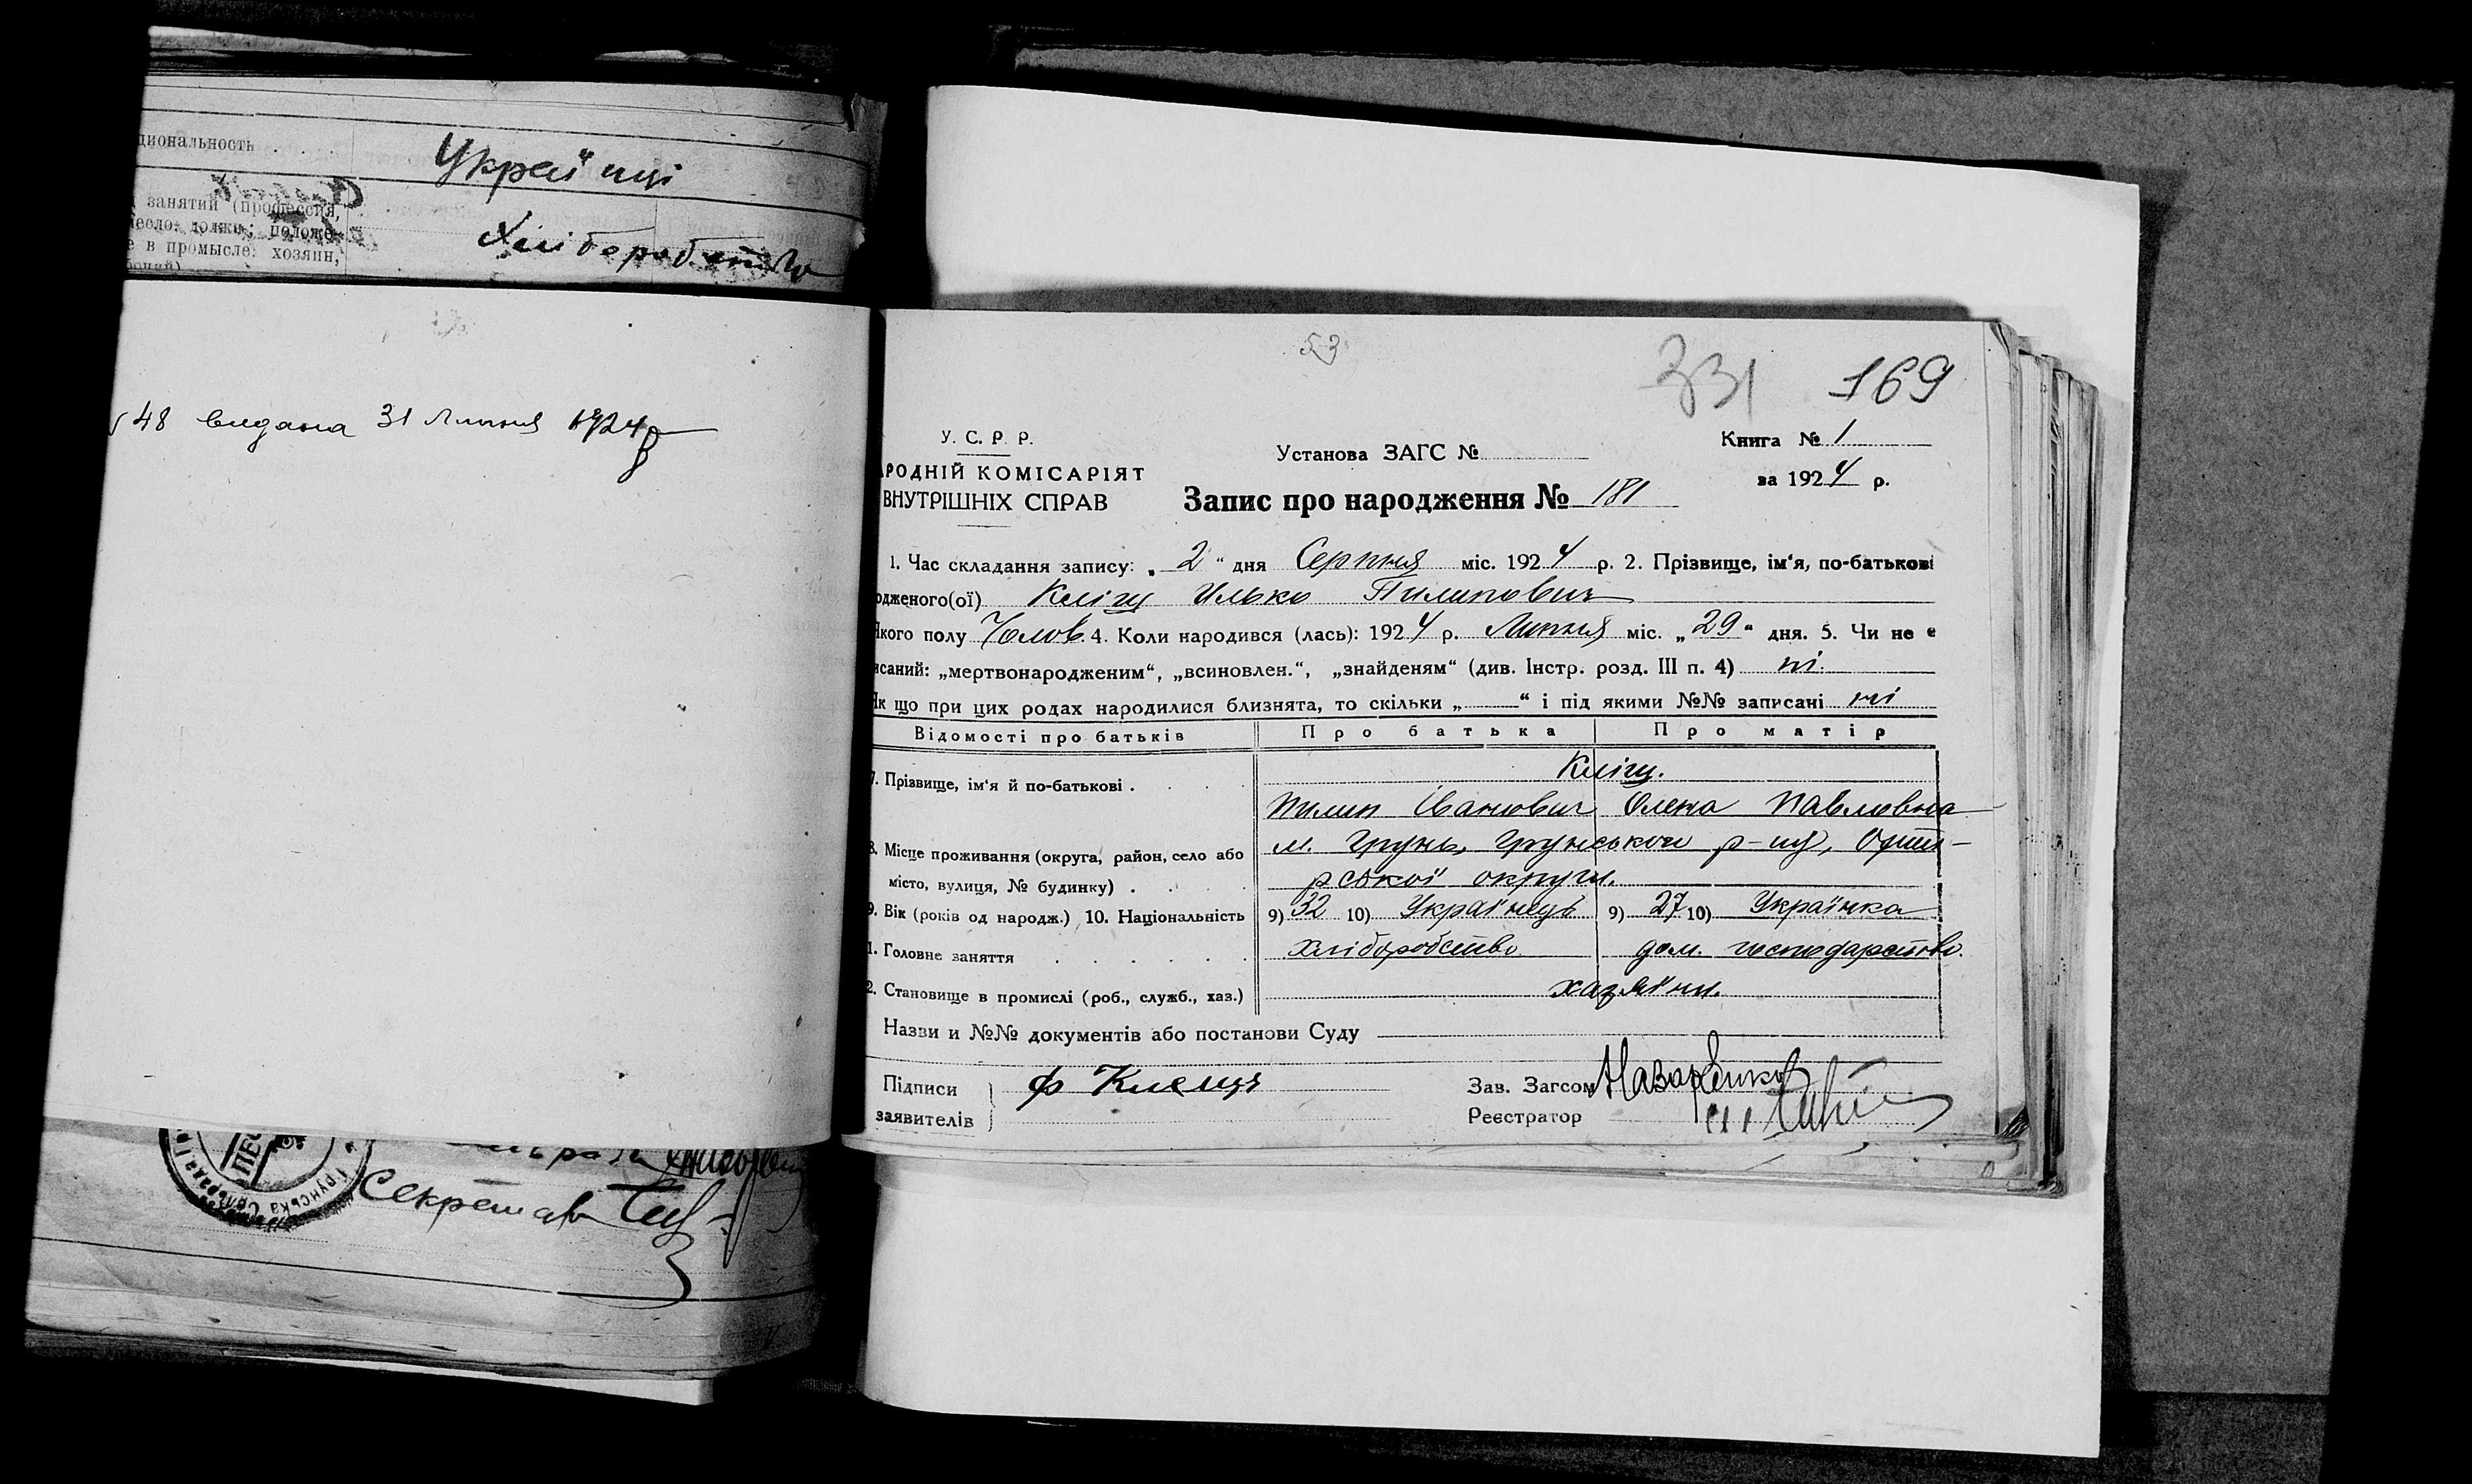 циональность . . . Україці
занятий (профессия,
положе-
е в промысле: хозяин,
Хліборобство
48 видана 31 Липня 1924 р
Секретар
53
331 169
У. С. Р. Р.
РОДНІЙ КОМІСАРІЯТ
ВНУТРІШНІХ СПРАВ
Установа ЗАГС №
Книга № 1
за 1924 р.
Запис про народження № 181
1. Час складання запису: „ 2 " дня Серпня міс. 1924 р. 2. Прізвище, ім'я, по-батькові
одженого(ої) Кліщ Илько Пилипович
Якого полу Чолов. 4. Коли народився (лась): 1924 р. Липня міс. „29" дня. 5. Чи не є
исаний: „мертвонародженим", „всиновлен.", „знайденям" (див. Інстр. розд. III п. 4) ні.
Як що при цих родах народилися близнята, то скільки „——" і під якими №№ записані ні
Відомості про батьків Про батька Про матір
7. Прізвище, ім'я й по-батькові . Кліщ.
Пилип Іванович Олена Павловна
8. Місце проживання (округа, район, село або м. Грунь, Грунської р-ну, Охти-
місто, вулиця, № будинку) . рської округи.
9. Вік (років од народж.) 10. Національність 9) 32 10) Українець 9) 27 10) Українка
1. Головне заняття хліборобство дом. господарство.
2. Становище в промислі (роб., служб., хаз.) хазяїни.
Назви и №№ документів або постанови Суду
Підписи
заявителів
ф Клещя
Зав. Загсом Назаренко
Реєстратор